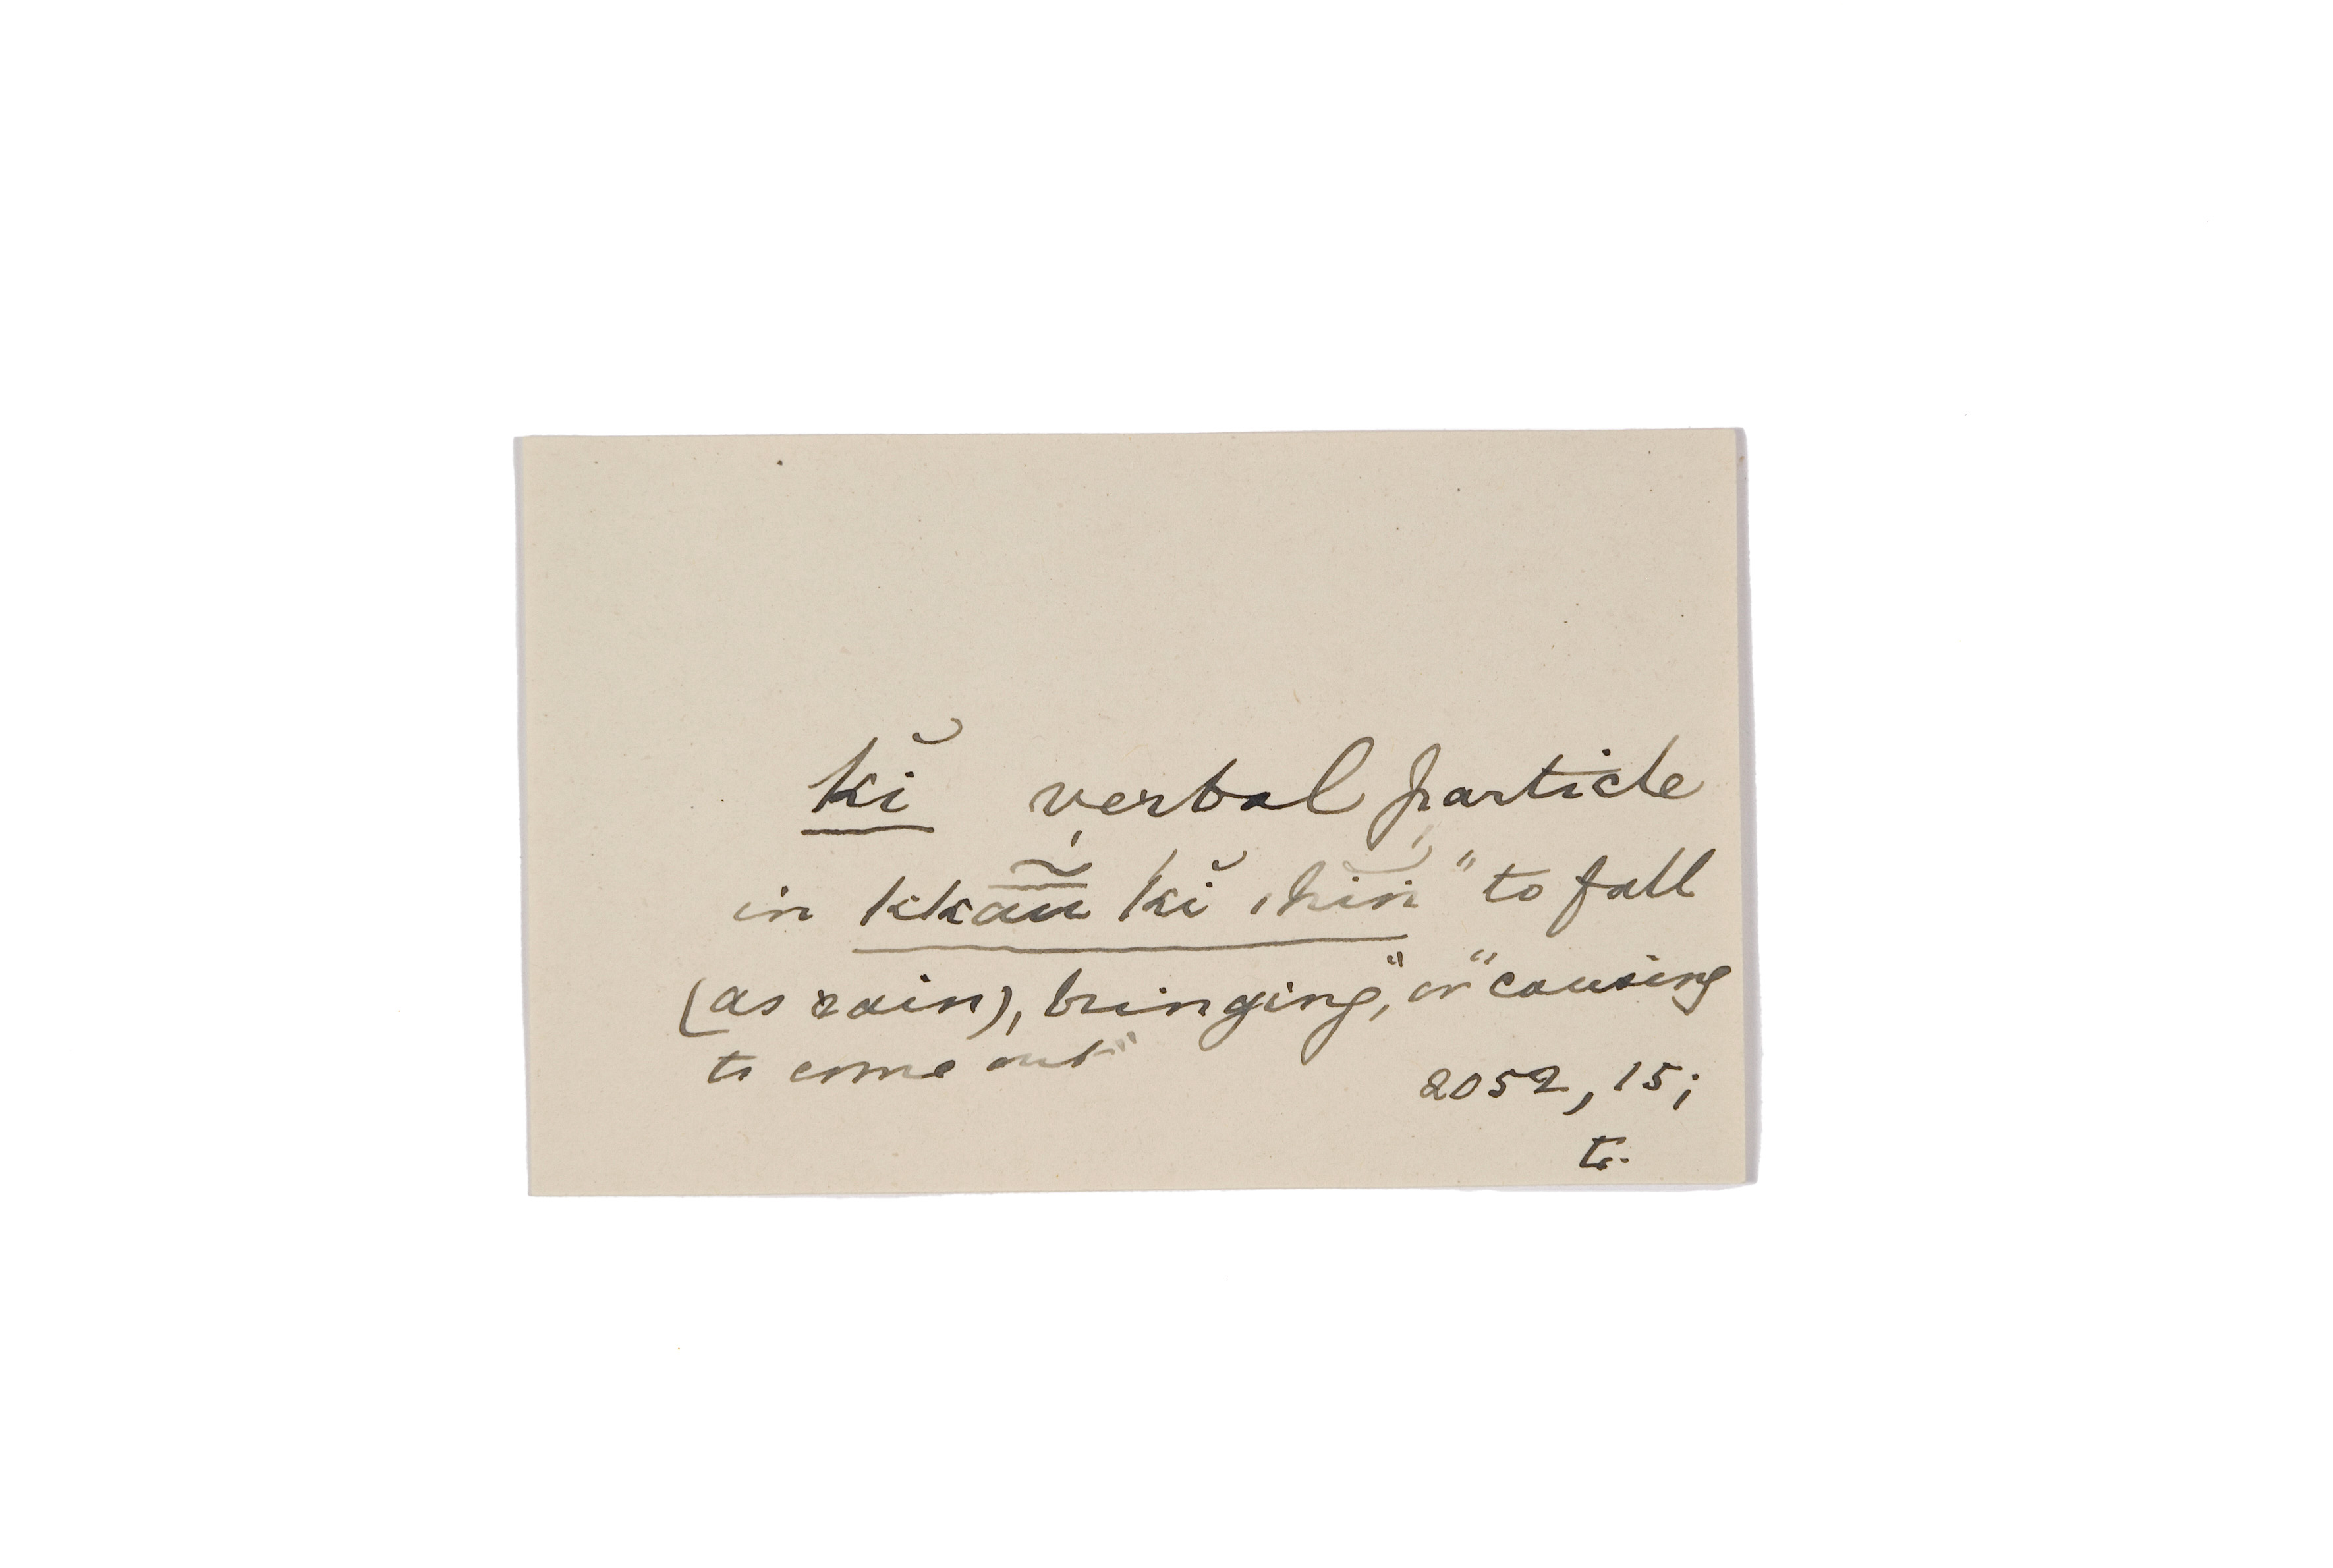 kĭ verbal particle
in kkãū́ kĭ ‚hĭń "to fall
(as rain), bringing," or "causing
to come out"
2052, 15;
tr.